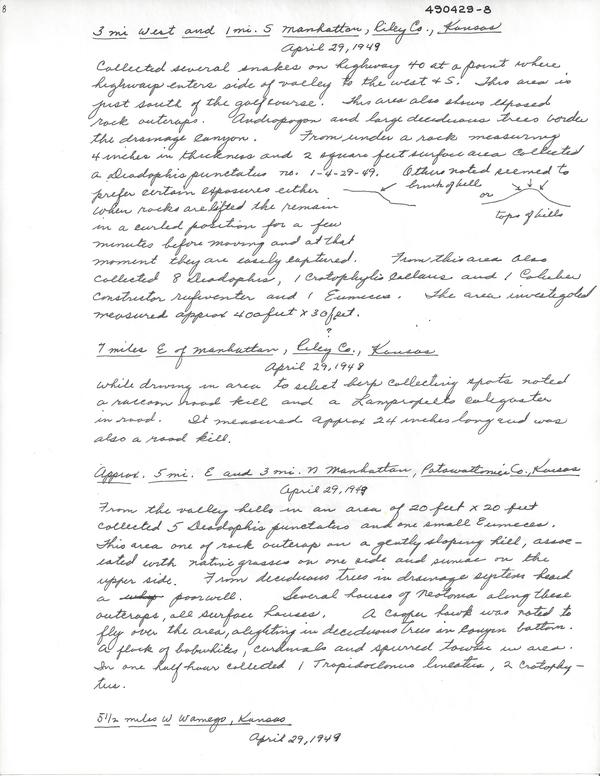 8
490429-8
3 mi West and 1 mi. S Manhattan, Riley Co., Kansas
April 29, 1949
Collected several snakes on highway 40 at a point where
highway enters side of valley to the west + S. This area is
just south of the golf course. This area also shows exposed
rock outcrops. Andropogon and large deciduous trees border
the drainage canyon. From under a rock measuring
4 inches in thickness and 2 square feet surface area collected
a Diadophis punctatus no. 1-4-29-49. Others noted seemed to
prefer certain exposures either brink of hills or
tops of hills
When rocks are lifted the remain
in a curled position for a few
minutes before moving and at that
moment they are easily captured. From this area also
collected 8 Diadophis, 1 Crotophytis collaris and 1 Coluber
constrictor and 1 Eumeces. The area investigated
measured approx 400 feet x 30 feet.
?
7 miles E of Manhattan, Riley Co., Kansas
April 29, 1949
While driving in area to select herp collecting spots noted
a raccoon road kill and a Lampropeltis
in road. It measured approx 24 inches long and was
also a road kill.
Approx. 5 mi. E and 3 mi. N Manhattan, Potawattomie Co., Kansas
April 29, 1949
From the valley hills in an area of 20 feet x 20 feet
collected 5 Diadophis punctatus and one small Eumeces.
This area one of rock outcrop on a gently sloping hill, assoc-
iated with native grasses on one side and sumac on the
upper side. From deciduous trees in drainage system heard
a poorwill. Several houses of Neotoma along these
outcrops, all surface houses. A cooper hawk was noted to
fly over the area, alighting in deciduous trees in canyon bottom.
A flock of bobwhites, cardinals and spurred towhee in area.
In one half hour collected 1 Tropidoclonus lineatus, 2 Crotophy-
tus.
5 1/2 miles W Wamego, Kansas
April 29, 1949